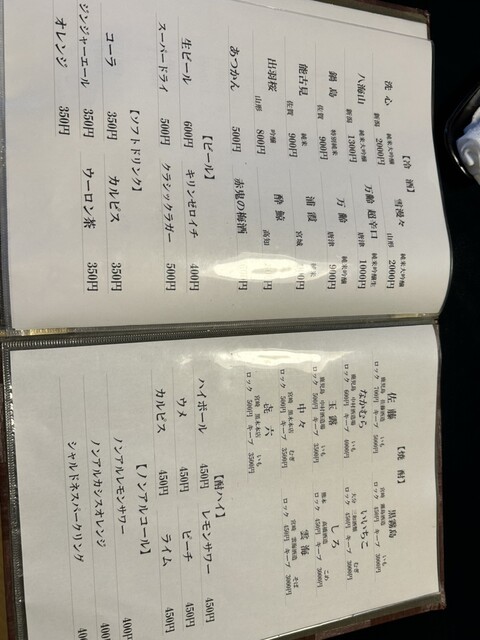 【冷 酒】
洗 心
新潟 純米大吟醸 2000円
八海山
新潟 純米大吟醸 1300円
鍋 島
佐賀 特別純米 900円
能古見
佐賀 純米 900円
出羽桜
山形 吟醸 800円
あつかん 500円
雪漫々
山形 純米大吟醸 2000円
万齢 超辛口
唐津 純米吟醸生 1000円
万 齢
唐津 純米吟醸 900円
浦 霞
宮城
酔 鯨
高知
赤鬼の梅酒
【ビール】
生ビール 600円 キリンゼロイチ 400円
スーパードライ 500円 クラシックラガー 500円
【ソフトドリンク】
コーラ 350円 カルピス 350円
ジンジャーエール 350円 ウーロン茶 350円
オレンジ 350円
【焼 酎】
佐 藤
鹿児島 佐藤酒造 いも
ロック 700円 キープ 5000円
なかむら
鹿児島 中村酒造場 いも
ロック 600円 キープ 4000円
玉 露
鹿児島 中村酒造場 いも
ロック 500円 キープ 3500円
中 々
宮崎 黒木本店 むぎ
ロック 500円 キープ 3500円
㐂 六
宮崎 黒木本店 いも
ロック 500円 キープ 3500円
黒霧島
宮崎 霧島酒造 いも
ロック 450円 キープ 3000円
いいちこ
大分 三和酒類 むぎ
ロック 450円 キープ 3000円
しろ
熊本 高橋酒造 こめ
ロック 450円 キープ 3000円
雲 海
宮崎 雲海酒造 そば
ロック 450円 キープ 3000円
【酎ハイ】
ハイボール 450円 レモンサワー 450円
ウメ 450円 ピーチ 450円
カルピス 450円 ライム 450円
【ノンアルコール】
ノンアルレモンサワー 400円
ノンアルカシスオレンジ 400
シャルドネスパークリング 400